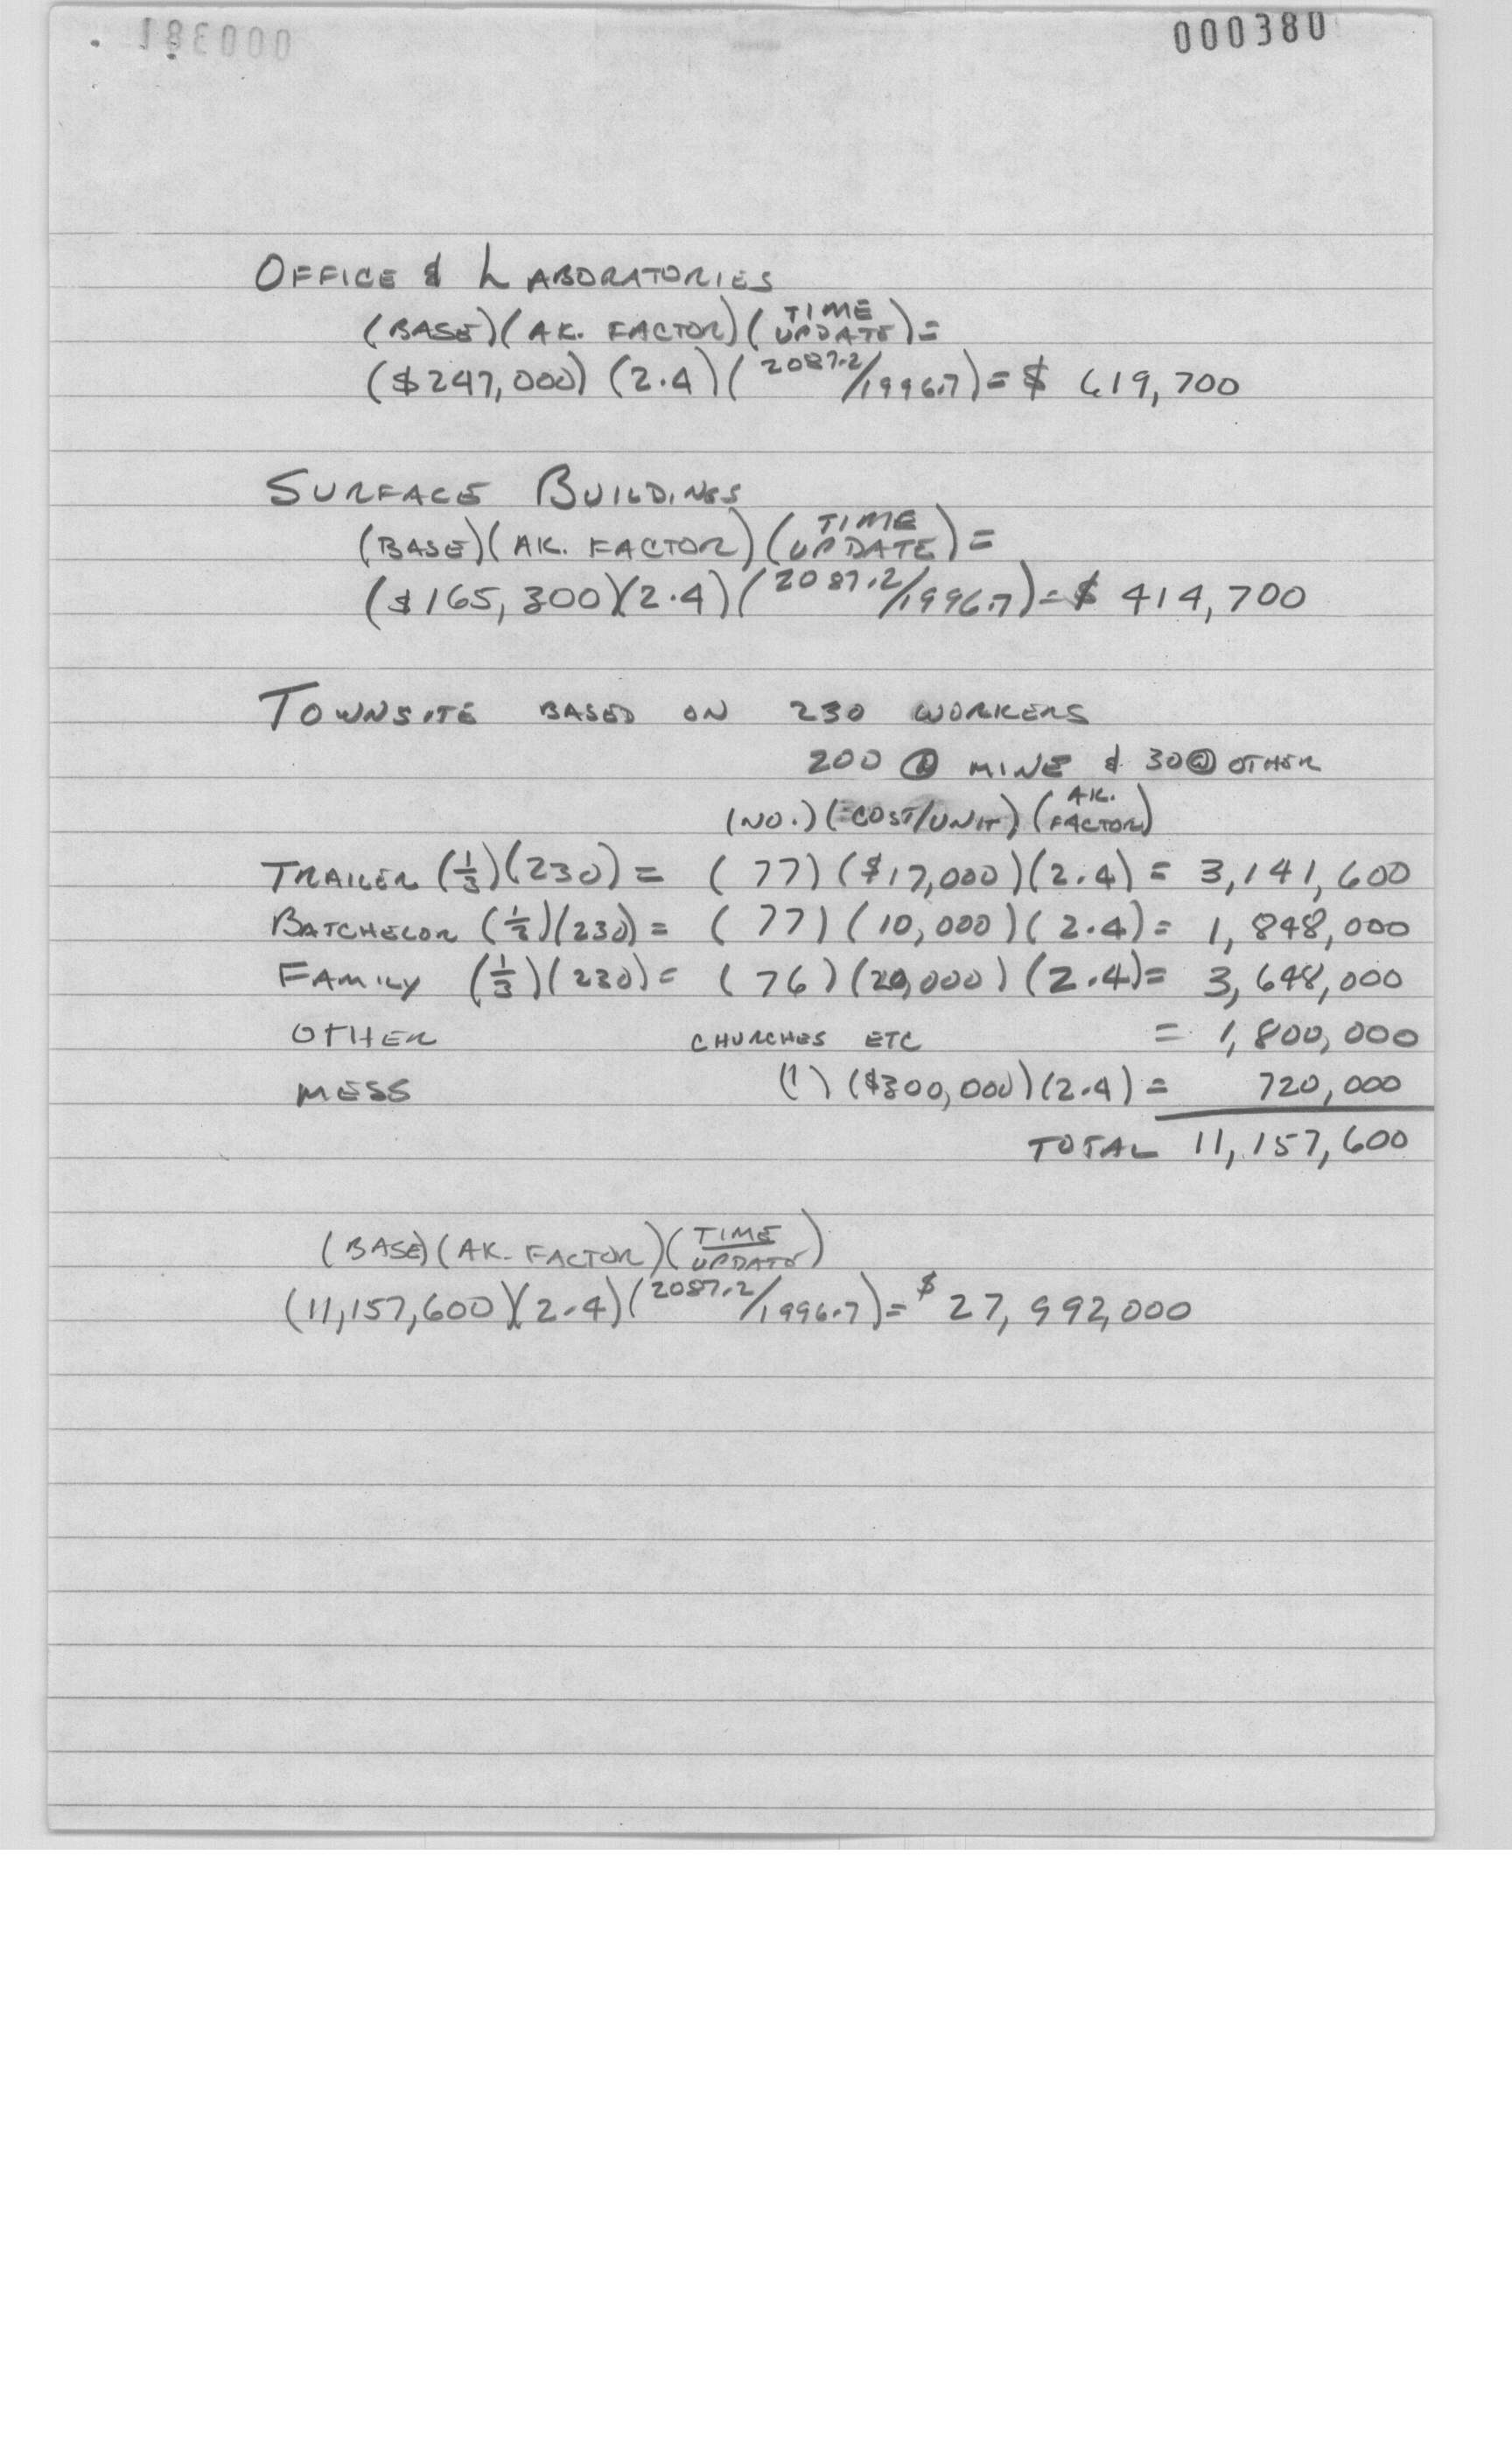 000381
000380
OFFICE & LABORATORIES
(BASE)(AK. FACTOR)(TIME UPDATE)=
($247,000)(2.4)(2087.2/1996.7)=$ 619,700
SURFACE BUILDINGS
(BASE)(AK. FACTOR)(TIME UPDATE)=
($165,300)(2.4)(2087.2/1996.7)=$ 414,700
TOWNSITE BASED ON 230 WORKERS
200 @ MINE & 30 @ OTHER
(NO.)(COST/UNIT)(AK. FACTOR)
TRAILER (1/3)(230)= (77)($17,000)(2.4)= 3,141,600
BATCHELOR (1/3)(230)= (77)(10,000)(2.4)= 1,848,000
FAMILY (1/3)(230)= (76)(20,000)(2.4)= 3,648,000
OTHER CHURCHES ETC = 1,800,000
MESS (1)($300,000)(2.4)= 720,000
TOTAL 11,157,600
(BASE)(AK. FACTOR)(TIME UPDATE)
(11,157,600)(2.4)(2087.2/1996.7)=$ 27,992,000